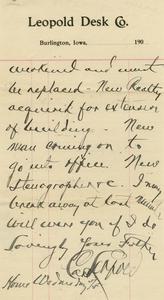 Leopold Desk Co.
Burlington, Iowa, 190
weakened and must
be replaced - New Realty
acquired for extension
of building. New
man coming on to
go into office. New
Stenographer etc. I may
break away at last minute
will wire you if I do
Lovingly Yours Father
Carl Leopold
Home Wednesday